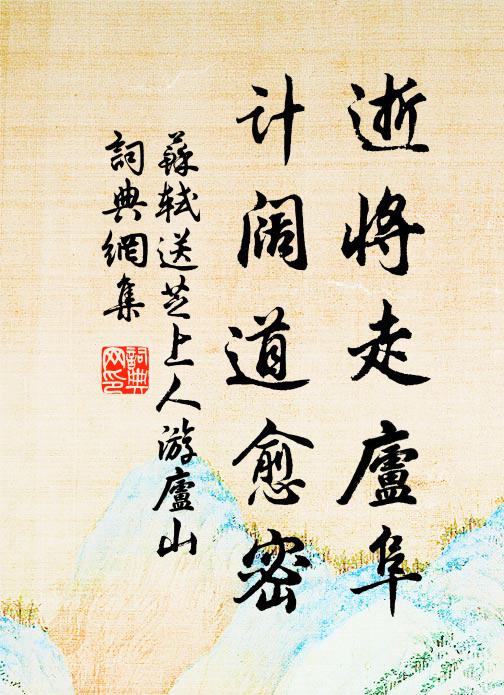 逝将走廬阜
计阔道愈密
蘇轼送芝上人游廬山
詞典網集
詞典网印